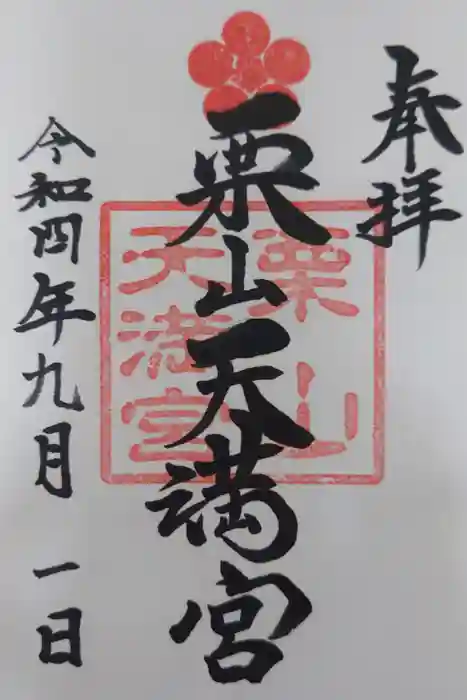 奉拝
栗山天満宮
栗山
天満宮
令和四年九月一日